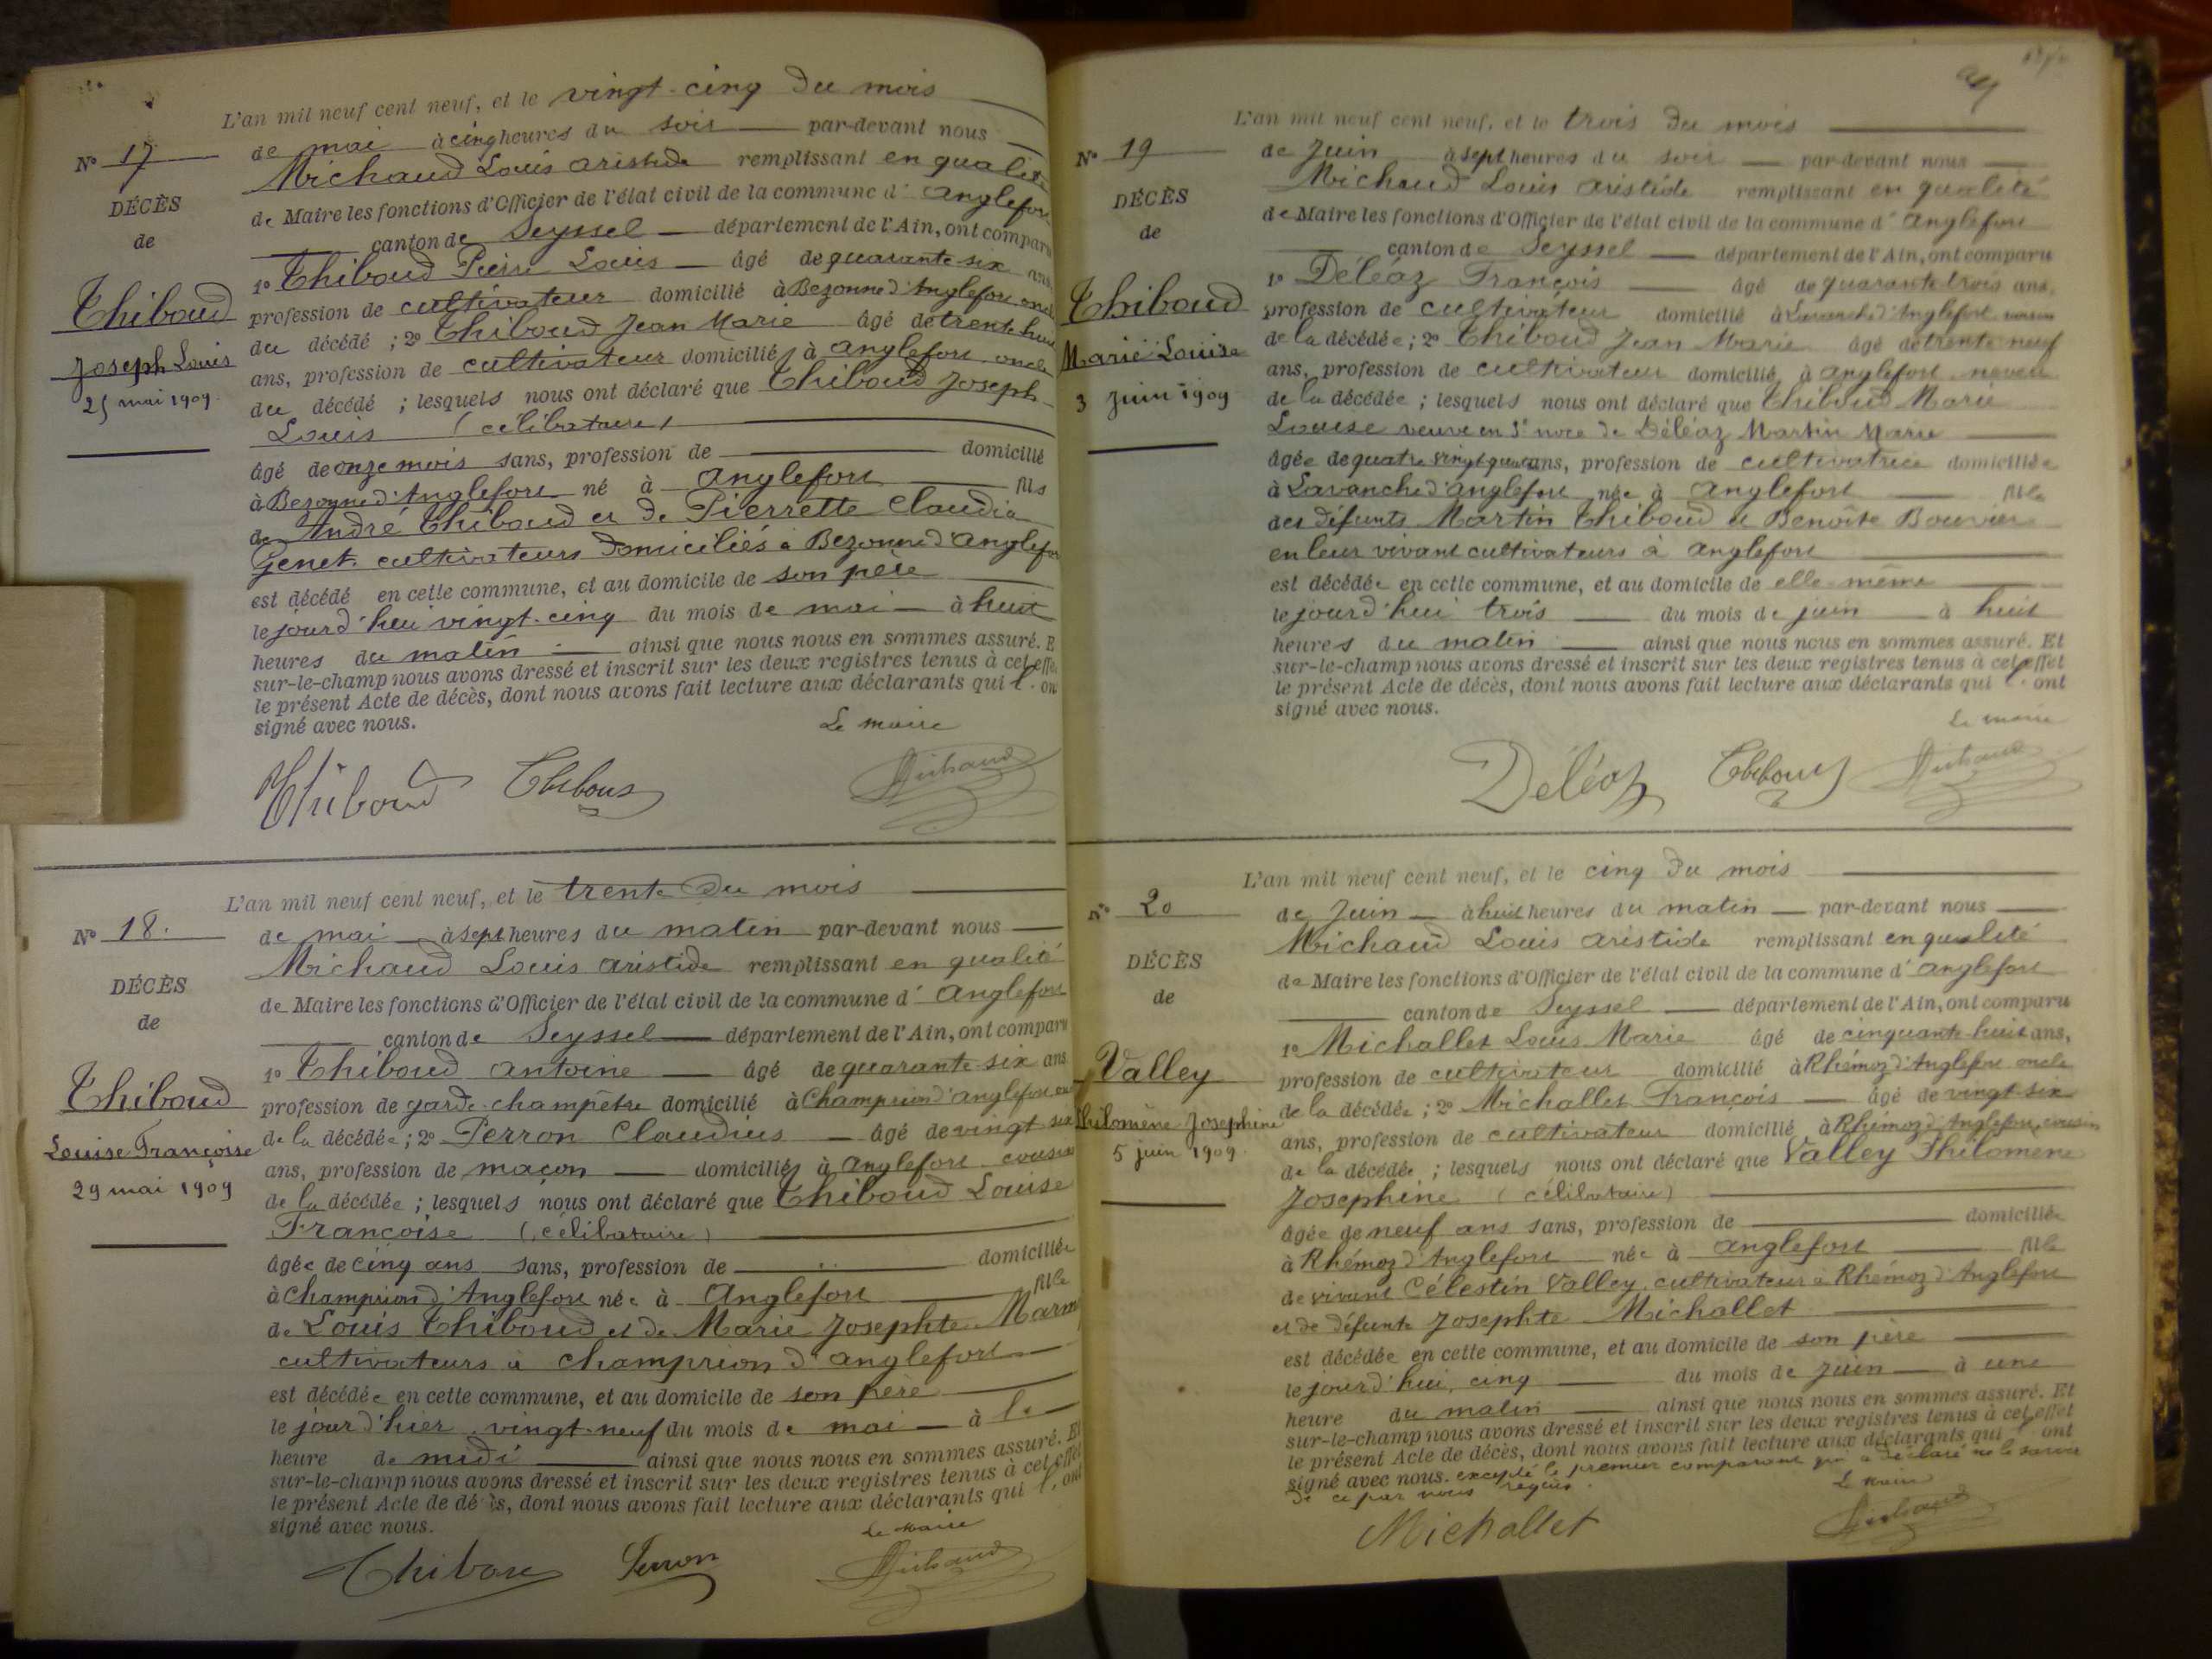 L'an mil neuf cent neuf, et le vingt-cinq du mois
N° 17
de mai à cinq heures du soir par-devant nous
Michaud Louis aristide remplissant en qualité
DÉCÈS
de Maire les fonctions d'Officier de l'état civil de la commune d' Anglefort
de
canton de Seyssel département de l'Ain, ont comparu
Thiboud
1° Thiboud Pierre Louis âgé de quarante six ans
profession de cultivateur domicilié à Bezonne d'Anglefort oncle
Joseph Louis
du décédé ; 2° Thiboud Jean Marie âgé de trente huit
25 mai 1909.
ans, profession de cultivateur domiciliés à anglefort oncle
du décédé ; lesquels nous ont déclaré que Thiboud Joseph
Louis (célibataire)
âgé de onze mois sans, profession de domicilié
à Bezonne d'Anglefort né à Anglefort fils
de André Thiboud et de Pierrette Claudia
Genet cultivateurs domiciliés à Bezonne d'anglefort
est décédé en cette commune, et au domicile de son père
le jourd'hui vingt-cinq du mois de mai à huit
heures du matin ainsi que nous nous en sommes assuré. E
sur-le-champ nous avons dressé et inscrit sur les deux registres tenus à cet effet
le présent Acte de décès, dont nous avons fait lecture aux déclarants qui l' ont
signé avec nous.
Le maire
Thiboud Thiboud Michaud
L'an mil neuf cent neuf, et le trente du mois
N° 18.
de mai à sept heures du matin par-devant nous
Michaud Louis aristide remplissant en qualité
DÉCÈS
de Maire les fonctions d'Officier de l'état civil de la commune d' Anglefort
de
canton de Seyssel département de l'Ain, ont comparu
Thiboud
1° Thiboud antoine âgé de quarante-six ans
profession de garde-champêtre domicilié à Champrion d'anglefort
Louise Françoise
de la décédée ; 2° Perron Claudius âgé de vingt-six
29 mai 1909
ans, profession de maçon domiciliés à anglefort cousin
de la décédée ; lesquels nous ont déclaré que Thiboud Louise
Françoise (célibataire)
âgée de cinq ans sans, profession de domiciliée
à Champrion d'Anglefort née à Anglefort fille
de Louis Thiboud et de Marie Josephte
cultivateurs à champrion d'anglefort
est décédée en cette commune, et au domicile de son père
le jour d'hier vingt-neuf du mois de mai à l
heure de midi ainsi que nous nous en sommes assuré. Et
sur-le-champ nous avons dressé et inscrit sur les deux registres tenus à cet effet
le présent Acte de décès, dont nous avons fait lecture aux déclarants qui l' ont
signé avec nous.
Le Maire
Thiboud Perron Michaud
L'an mil neuf cent neuf, et le trois du mois
N° 19
de Juin à sept heures du soir par-devant nous
Michaud Louis aristide remplissant en qualité
DÉCÈS
de Maire les fonctions d'Officier de l'état civil de la commune d' Anglefort
de
canton de Seyssel département de l'Ain, ont comparu
Thiboud
1° Déléaz François âgé de quarante-trois ans,
profession de cultivateur domicilié à Lavanche d'Anglefort voisin
Marie Louise
de la décédée ; 2° Thiboud Jean Marie âgé de trente neuf
3 Juin 1909
ans, profession de cultivateur domicilié à anglefort neveu
de la décédée ; lesquels nous ont déclaré que Thiboud Marie
Louise veuve en de Déléaz Martin Marie
âgée de quatre vingt quatre ans, profession de cultivatrice domiciliée
à Lavanche d'anglefort née à Anglefort fille
des défunts Martin Thiboud et Benoîte Bouvier
en leur vivant cultivateurs à anglefort
est décédée en cette commune, et au domicile de elle-même
le jourd'hui trois du mois de juin à huit
heures du matin ainsi que nous nous en sommes assuré. Et
sur-le-champ nous avons dressé et inscrit sur les deux registres tenus à cet effet
le présent Acte de décès, dont nous avons fait lecture aux déclarants qui l' ont
signé avec nous.
Le maire
Déléaz Thiboud Michaud
L'an mil neuf cent neuf, et le cinq du mois
N° 20
de Juin à huit heures du matin par-devant nous
Michaud Louis aristide remplissant en qualité
DÉCÈS
de Maire les fonctions d'Officier de l'état civil de la commune d' anglefort
de
canton de Seyssel département de l'Ain, ont comparu
Valley
1° Michallet Louis Marie âgé de cinquante-huit ans,
profession de cultivateur domicilié à Rhémoz d'Anglefort oncle
Philomène Josephine
de la décédée ; 2° Michallet François âgé de vingt-six
5 juin 1909.
ans, profession de cultivateur domicilié à Rhémoz d'Anglefort cousin
de la décédée ; lesquels nous ont déclaré que Valley Philomène
Josephine (célibataire)
âgée de neuf ans sans, profession de domiciliée
à Rhémoz d'Anglefort née à anglefort fille
de vivant Célestin Valley cultivateur à Rhémoz d'Anglefort
et de défunte Josephte Michallet
est décédée en cette commune, et au domicile de son père
le jourd'hui cinq du mois de Juin à une
heure du matin ainsi que nous nous en sommes assuré. Et
sur-le-champ nous avons dressé et inscrit sur les deux registres tenus à cet effet
le présent Acte de décès, dont nous avons fait lecture aux déclarants qui l' ont
signé avec nous. excepté le premier comparant qui a déclaré ne le savoir
de ce par nous requis.
Le Maire
Michallet Michaud